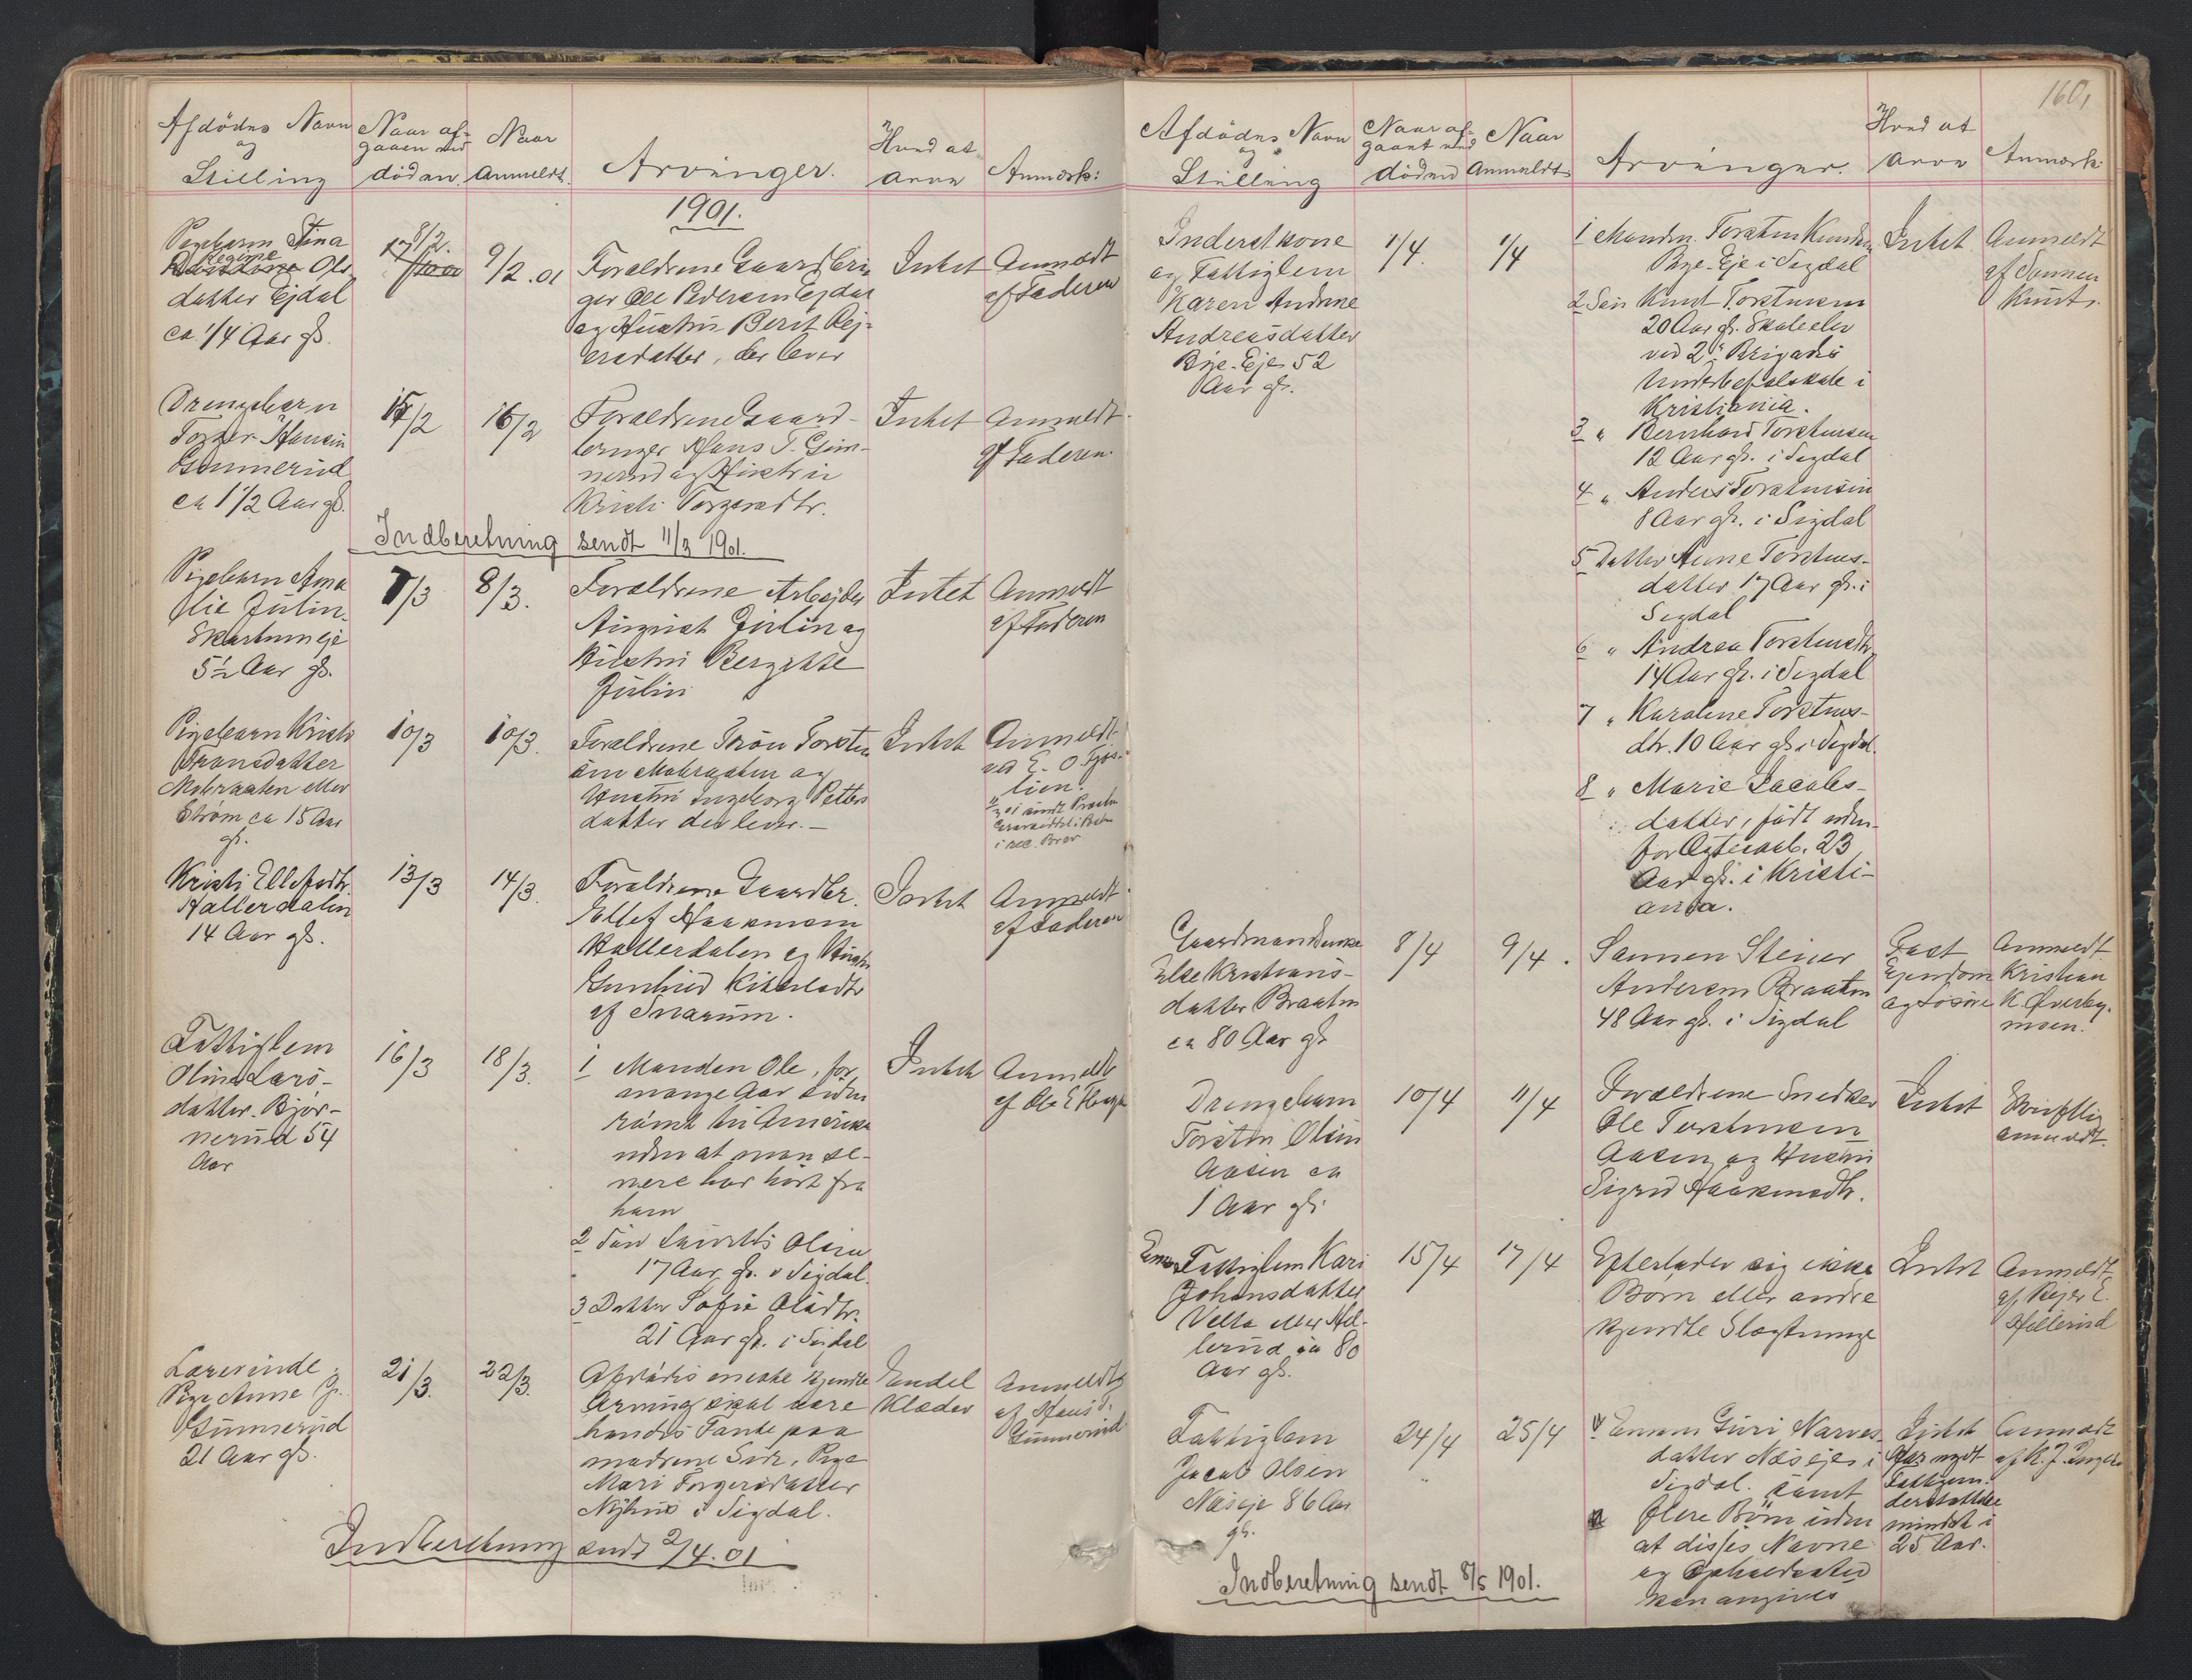 Afdödes Navn
og
Stilling
Naar af-
gaaen ved
döden.
Naar
Anmeldt.
Arvinger.
Hvad at
arve
Anmærk:
1901.
Pigebarn Stina
Regine Ols
datter Ejdal
ca 1/4 Aar gl.
8/2.
9/2.01
Forældrene Gaardbru
ger Ole Pedersen Ejdal
og Hustru Berit Rej-
ersdatter, der lever
Intet
Anmeldt
af Faderen
Drengebarn
Torger Hansen
Gunnerud
ca 1 1/2 Aar gl.
15/2
16/2
Forældrene Gaard-
bruger Hans T. Gun-
nerud og Hustru
Kristi Torgersdtr.
Intet
Anmeldt
af Faderen.
Indberetning sendt 11/3 1901.
Pigebarn Ama
lie Julin.
Skartumeje
5 1/2 Aar gl.
7/3
8/3.
Forældrene Arbejder
August Julin og
Hustru Bergitte
Julin
Intet
Anmeldt
af Faderen
Pigebarn Kristi
Tronsdatter
Mobraaten eller
Strøm ca 15 Aar
gl.
10/3
10/3.
Forældrene Tron Torsten
sen Mobraaten og
Hustru Ingeborg Petters
datter der lever.
Intet
Anmeldt
ved E. O.
lien.
Kristi Ellefsdtr.
Hallerdalen
14 Aar gl.
13/3
14/3.
Forældrene Gaardbr.
Ellef Haakensen
Hallerdalen og Hustru
Gunhild
af Snarum.
Intet
Anmeldt
af Faderen
Fattiglem
Olina Lars-
datter. Bjør-
nerud 54
Aar
16/3
18/3.
1 Manden Ole, for
mange Aar siden
rømt til Amerika
uden at man se-
nere har hørt fra
ham
2 Søn Laurits Olsen
17 Aar gl. i Sigdal.
3 Datter Sofie Olsdtr.
21 Aar gl. i Sigdal
Intet
Anmeldt
af Ole E.
Lærerinde
Pige Anne G.
Gunnerud
21 Aar gl.
21/3.
22/3.
Afdødes eneste kjendte
Arving skal være
hendes Tante paa
mødrene Side, Pige
Mari Torgersdatter
Nyhus i Sigdal.
Endel
Klæder
Anmeldt
af Hans T.
Gunnerud
Indberetning sendt 2/4.01
160,
Afdödes Navn
og
Stilling
Naar af-
gaaet ved
döden
Naar
Anmeldt
Arvinger.
Hvad at
arve
Anmærk:
Inderstkone
og Fattiglem
Karen Andrine
Andreasdatter
Bye-Eje 52
Aar gl.
1/4.
1/4
1 Manden Torsten Knudsen
Bye-Eje i Sigdal
2 Søn Knut Torstensen
20 Aar gl. Skoleelev
ved 2. Brigades
Underbefalsskole i
Kristiania.
3 " Bernhard Torstensen
12 Aar gl. i Sigdal
4 " Anders Torstensen
8 Aar gl. i Sigdal
5 Datter Anne Torstens-
datter 17 Aar gl. i
Sigdal
6 " Andrea Torstensdtr.
14 Aar gl. i Sigdal
7 " Karoline Torstens-
dtr. 10 Aar gl. i Sigdal.
8 " Marie Jacobs-
datter, født uden-
for Ægteskab. 23
Aar gl. i Kristi-
ania.
Intet
Anmeldt
af Sønnen
Knut.
Gaardmandsenke
Else Kristians-
datter Braaten
ca 80 Aar gl
8/4
9/4.
Sønnen Steiner
Andersen Braaten
48 Aar gl. i Sigdal
Fast
Ejendom
og Løsøre
Anmeldt
Kristian
K. Øverby-
moen.
Drengebarn
Torsten Olsen
Aasen ca
1 Aar gl.
10/4
11/4
Forældrene Snedker
Ole Torstensen
Aasen og Hustru
Sigrid Haakensdtr.
Intet
Skriftlig
anmeldt.
Enke Fattiglem Kari
Johansdatter
Velta eller Hil-
lerud ca 80
Aar gl.
15/4
17/4
Efterlader sig ikke
Børn eller andre
kjendte Slægtninge
Intet
Anmeldt
af Rejer E.
Hillerud
Fattiglem
Jacob Olsen
Næseje 86 Aar
gl.
24/4
25/4
1 Enken Guri Narves-
datter Næseje i
Sigdal. samt
2 flere Børn uden
at disses Navne
og Opholdssted
kan angives
Intet
Har nydt
Fattigun-
derstøttelse
mindst i
25 Aar.
Anmeldt
Indberetning sendt 8/5 1901.